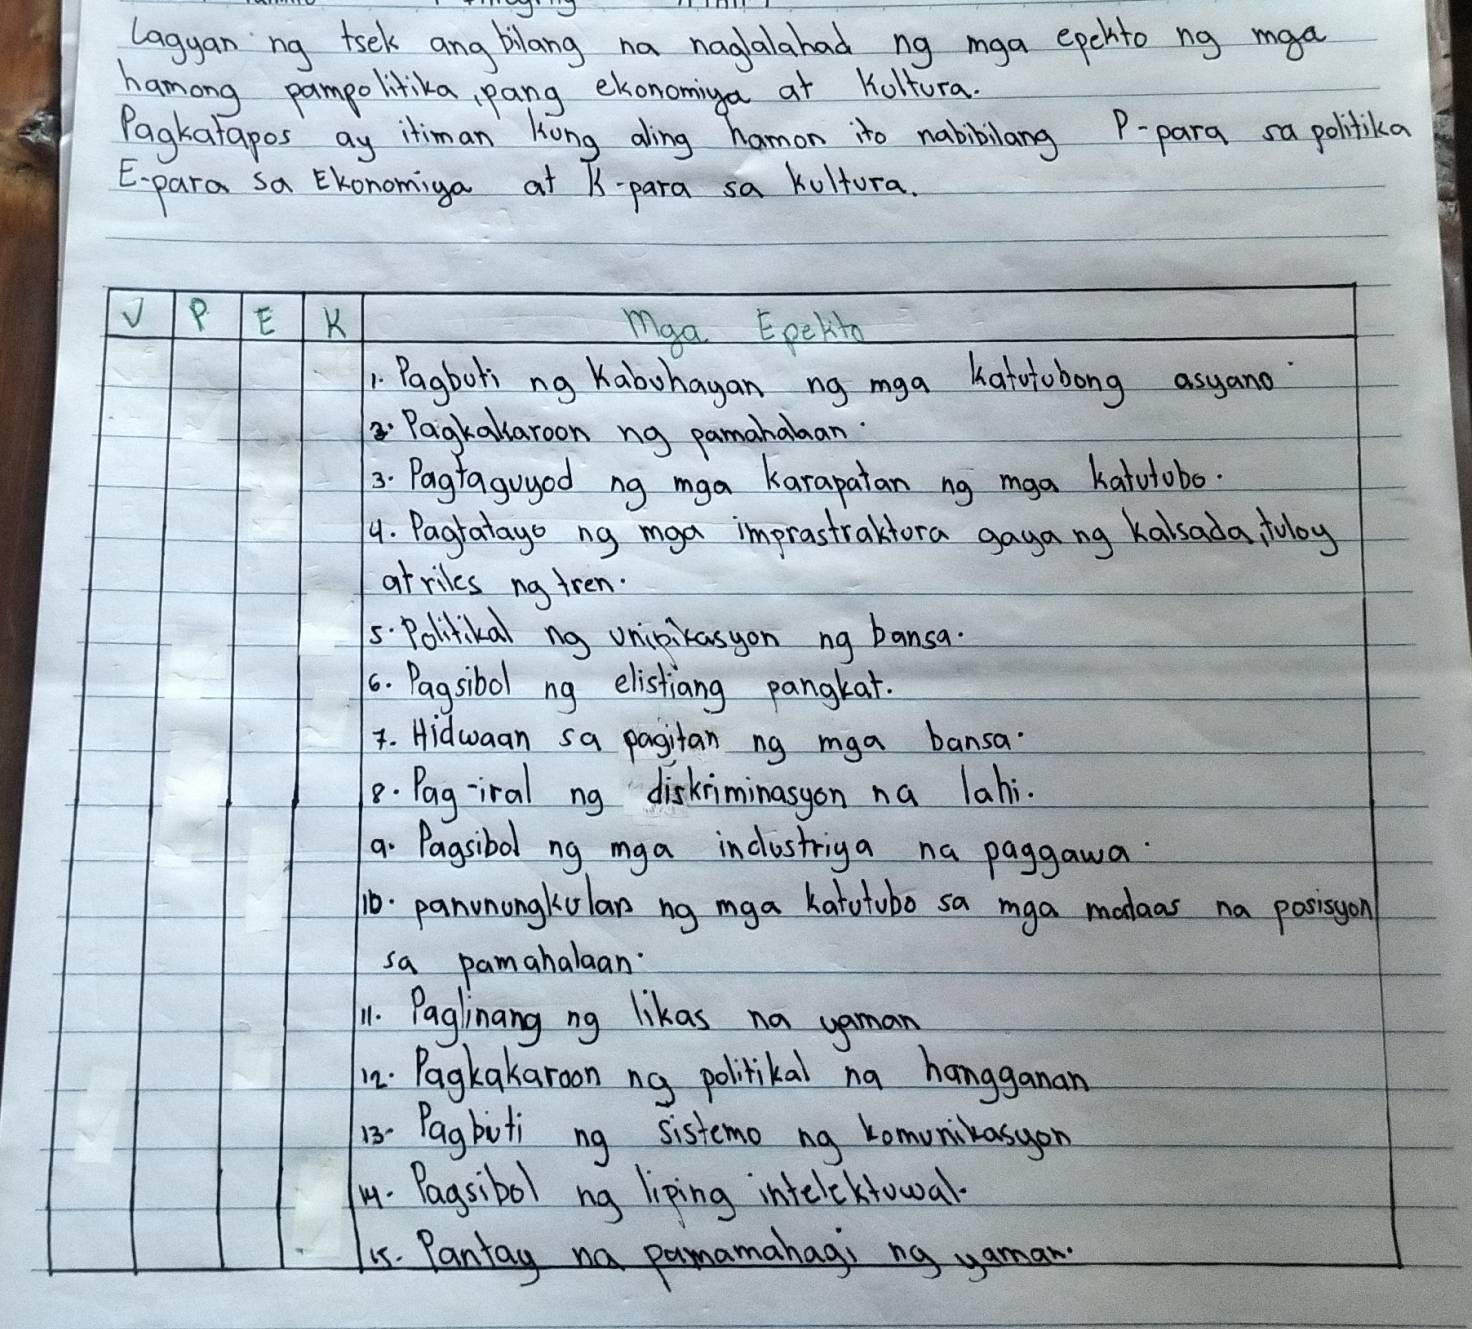 Lagyan ng tsek ang bilang na naglalahad ng mga epekto ng mga
hamong pampolitika, pang ekonomiya at Kultura.
Pagkatapos ay itiman kung aling hamon ito nabibilang P-para sa politika
E-para sa Ekonomiya at K-para sa kultura.
√ P E K Mga Epekto
1. Pagbuti ng Kabuhayan ng mga katutubong asyano.
2. Pagkakaroon ng pamahalaan.
3. Pagtaguyod ng mga karapatan ng mga katutubo.
4. Pagtatayo ng mga imprastraktura gaya ng kalsada, tuloy
at riles ng tren.
5. Politikal ng unipikasyon ng bansa.
6. Pagsibol ng elistiang pangkat.
7. Hidwaan sa pagitan ng mga bansa.
8. Pag-iral ng diskriminasyon na lahi.
9. Pagsibol ng mga industriya na paggawa.
10. panunungkulan ng mga katutubo sa mga mataas na posisyon
sa pamahalaan.
11. Paglinang ng likas na yaman
12. Pagkakaroon ng politikal na hangganan
13. Pagbuti ng sistemo ng komunikasyon
14. Pagsibol ng liping intelektuwal.
15. Pantay na pamamahagi ng yaman.